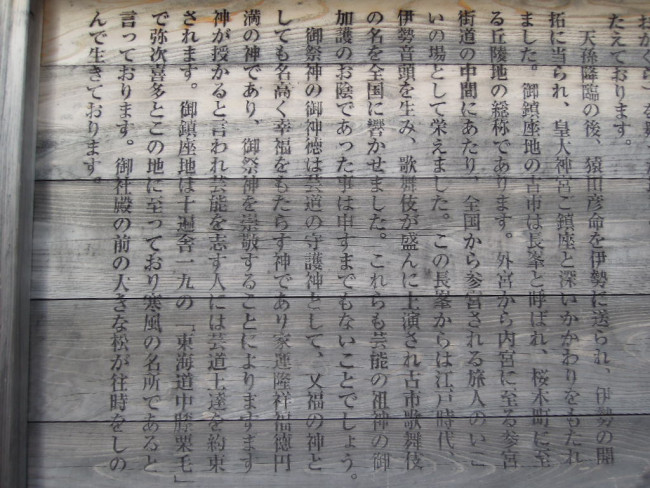 たえております。
天孫降臨の後、猿田彦命を伊勢に送られ、伊勢の開
拓に当られ、皇大神宮ご鎮座と深いかかわりをもたれ
ました。御鎮座地の古市は長峯と呼ばれ、桜木町に至
る丘陵地の総称であります。外宮から内宮に至る参宮
街道の中間にあたり、全国から参宮される旅人のいこ
いの場として栄えました。この長峯からは江戸時代、
伊勢音頭を生み、歌舞伎が盛んに上演され古市歌舞伎
の名を全国に響かせました。これらも芸能の祖神の御
加護のお陰であった事は申すまでもないことでしょう。
御祭神の御神徳は芸道の守護神として、又福の神と
しても名高く幸福をもたらす神であり家運隆祥福徳円
満の神であり、御祭神を崇敬することによりますます
神が授かると言われ芸能を志す人には芸道上達を約束
されます。御鎮座地は十遍舎一九の「東海道中膝栗毛」
で弥次喜多とこの地に至っており寒風の名所であると
言っております。御社殿の前の大きな松が往時をしの
んで生きております。